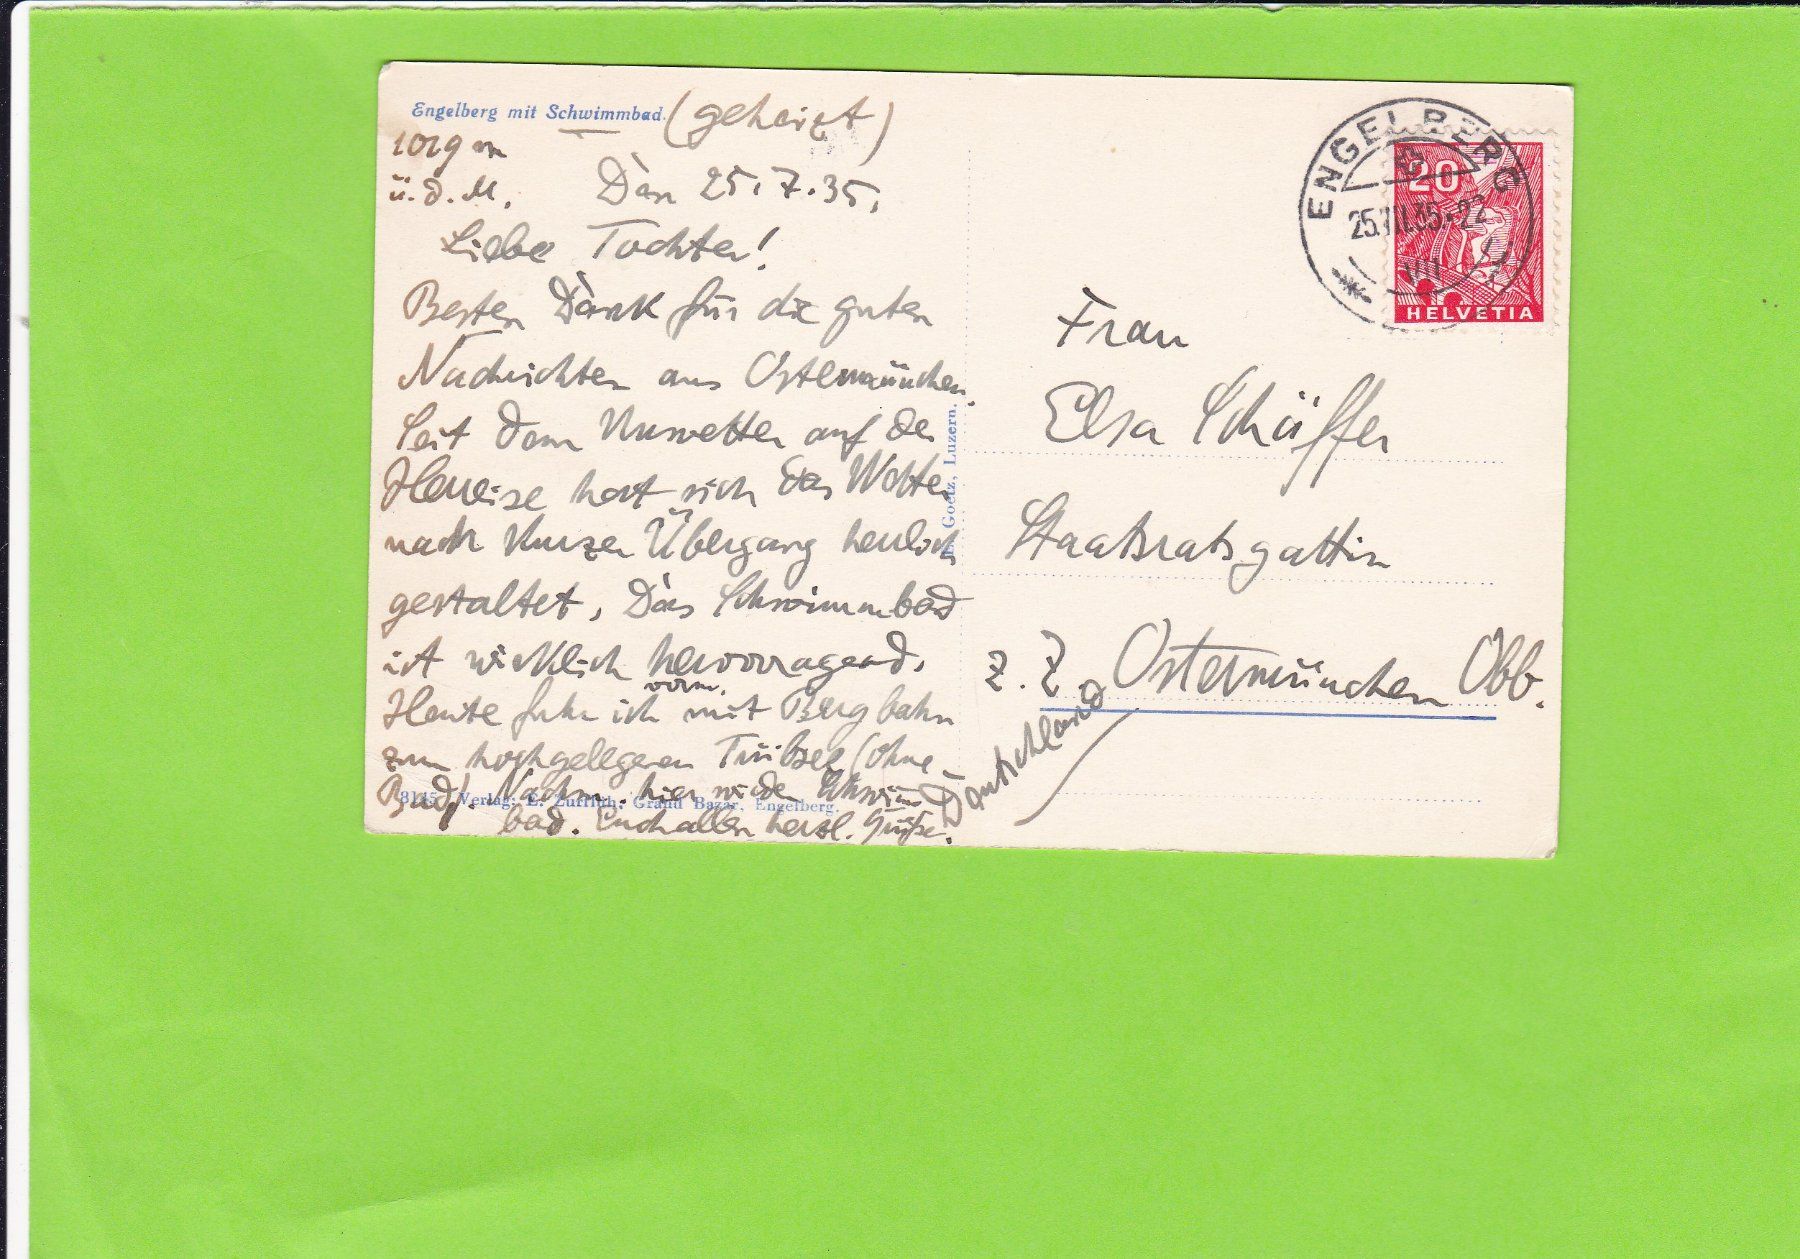 Engelberg mit Schwimmbad. (geheizt)
1019 m
ü. d. M. Den 25.7.35.
Liebe Tochter!
Besten Dank für die guten
Nachrichten aus Ostermünchen.
Seit dem Unwetter auf der
Herreise hat sich das Wetter
nach kurzer Übergang herrlich
gestaltet. Das Schwimmbad
ist wirklich hervorragend.
Heute fuhr ich vorm. mit Bergbahn
zum hochgelegenen Trübsee (ohne
Bad). Nachm. hier wieder Schwimm
bad. Euch allen herzl. Grüße.
8145 Verlag: E. Zurflüh, Grand Bazar, Engelberg.
Goetz, Luzern.
ENGELBERG
25.VII.35.-22
VIII
20
HELVETIA
Frau
Elsa Schäffer
Staatsratsgattin
z. Z. Ostermünchen Obb.
Deutschland